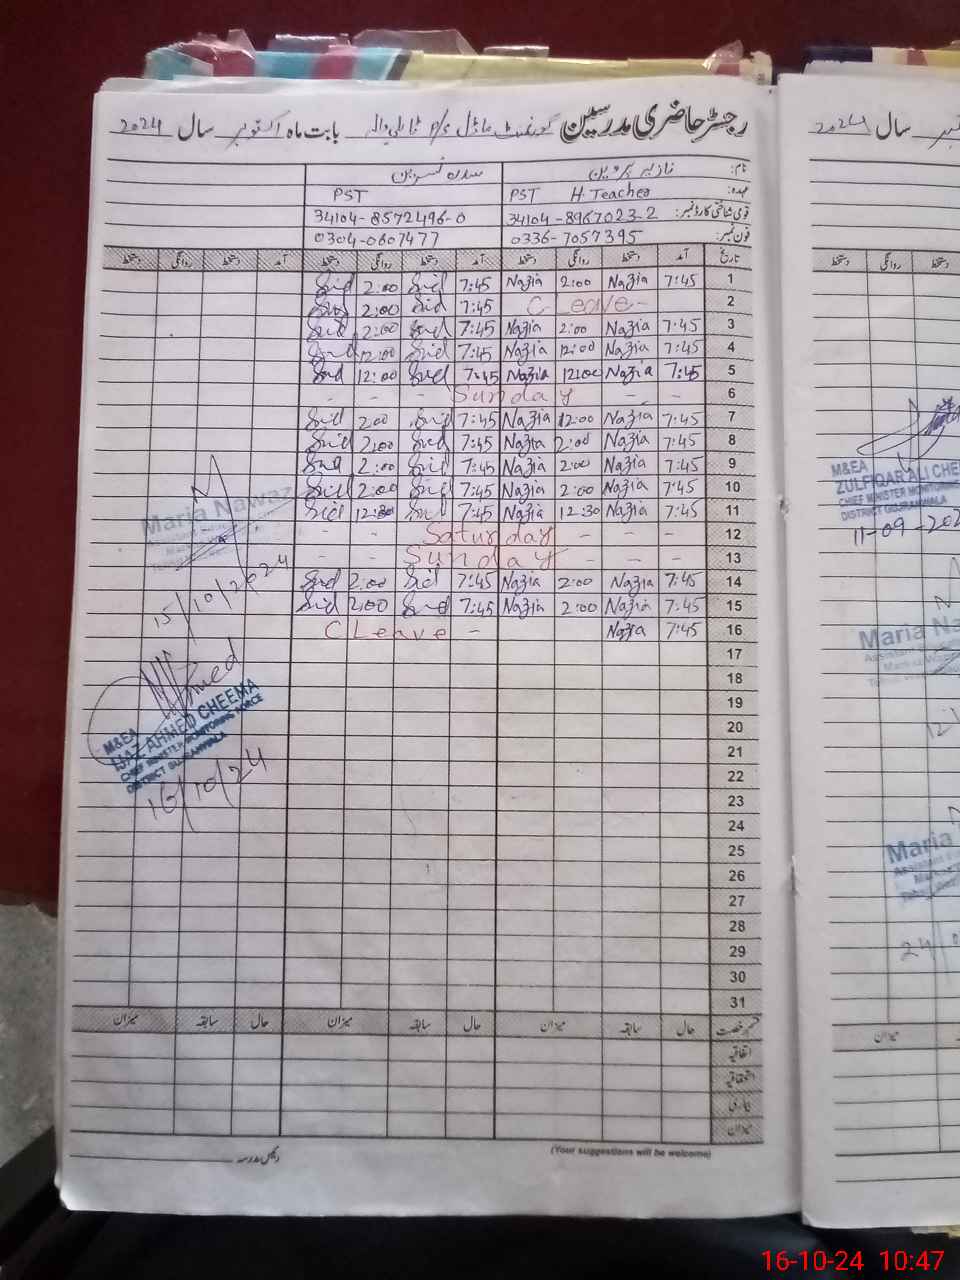 رجسٹر حاضری مدرسین گورنمنٹ ماڈل P/S بابت ماہ اکتوبر سال 2024
نام: نازیہ پروین سدرہ نسرین
عہدہ: PST H. Teacher PST
قومی شناختی کارڈ نمبر: 34104-8967023-2 34104-8572496-0
فون نمبر: 0336-7057395 0304-0607477
تاریخ آمد دستخط روانگی دستخط آمد دستخط روانگی دستخط آمد دستخط روانگی دستخط
1 7:45 Nazia 2:00 Nazia 7:45 Sid 2:00 Sid
2 C Leave - 7:45 Sid 2:00 Sid
3 7:45 Nazia 2:00 Nazia 7:45 Sid 2:00 Sid
4 7:45 Nazia 12:00 Nazia 7:45 Sid 12:00 Sid
5 7:45 Nazia 12:00 Nazia 7:45 Sid 12:00 Sid
6 - - Sunday - - -
7 7:45 Nazia 12:00 Nazia 7:45 Sid 2:00 Sid
8 7:45 Nazia 2:00 Nazia 7:45 Sid 2:00 Sid
9 7:45 Nazia 2:00 Nazia 7:45 Sid 2:00 Sid
10 7:45 Nazia 2:00 Nazia 7:45 Sid 2:00 Sid
11 7:45 Nazia 12:30 Nazia 7:45 Sid 12:30 Sid
12 - - - Saturday - -
13 - - - Sunday - -
14 7:45 Nazia 2:00 Nazia 7:45 Sid 2:00 Sid
15 7:45 Nazia 2:00 Nazia 7:45 Sid 2:00 Sid
16 7:45 Nazia C Leave -
17
18
19
20
21
22
23
24
25
26
27
28
29
30
31
قسم رخصت حال سابقہ میزان حال سابقہ میزان حال سابقہ میزان
اتفاقیہ
استحقاقیہ
بیماری
میزان
(Your suggestions will be welcome)
Maria Nawaz
15/10/2024
Ahmed
M&EA
IJAZ AHMED CHEEMA
CHIEF MINISTER MONITORING FORCE
DISTRICT GUJRANWALA
16/10/24
سال 2024
دستخط روانگی دستخط
M&EA
ZULFIQAR ALI CHE
CHIEF MINISTER MONITORING
DISTRICT GUJRANWALA
11-09-202
Maria Na
Maria
24
میزان
16-10-24 10:47